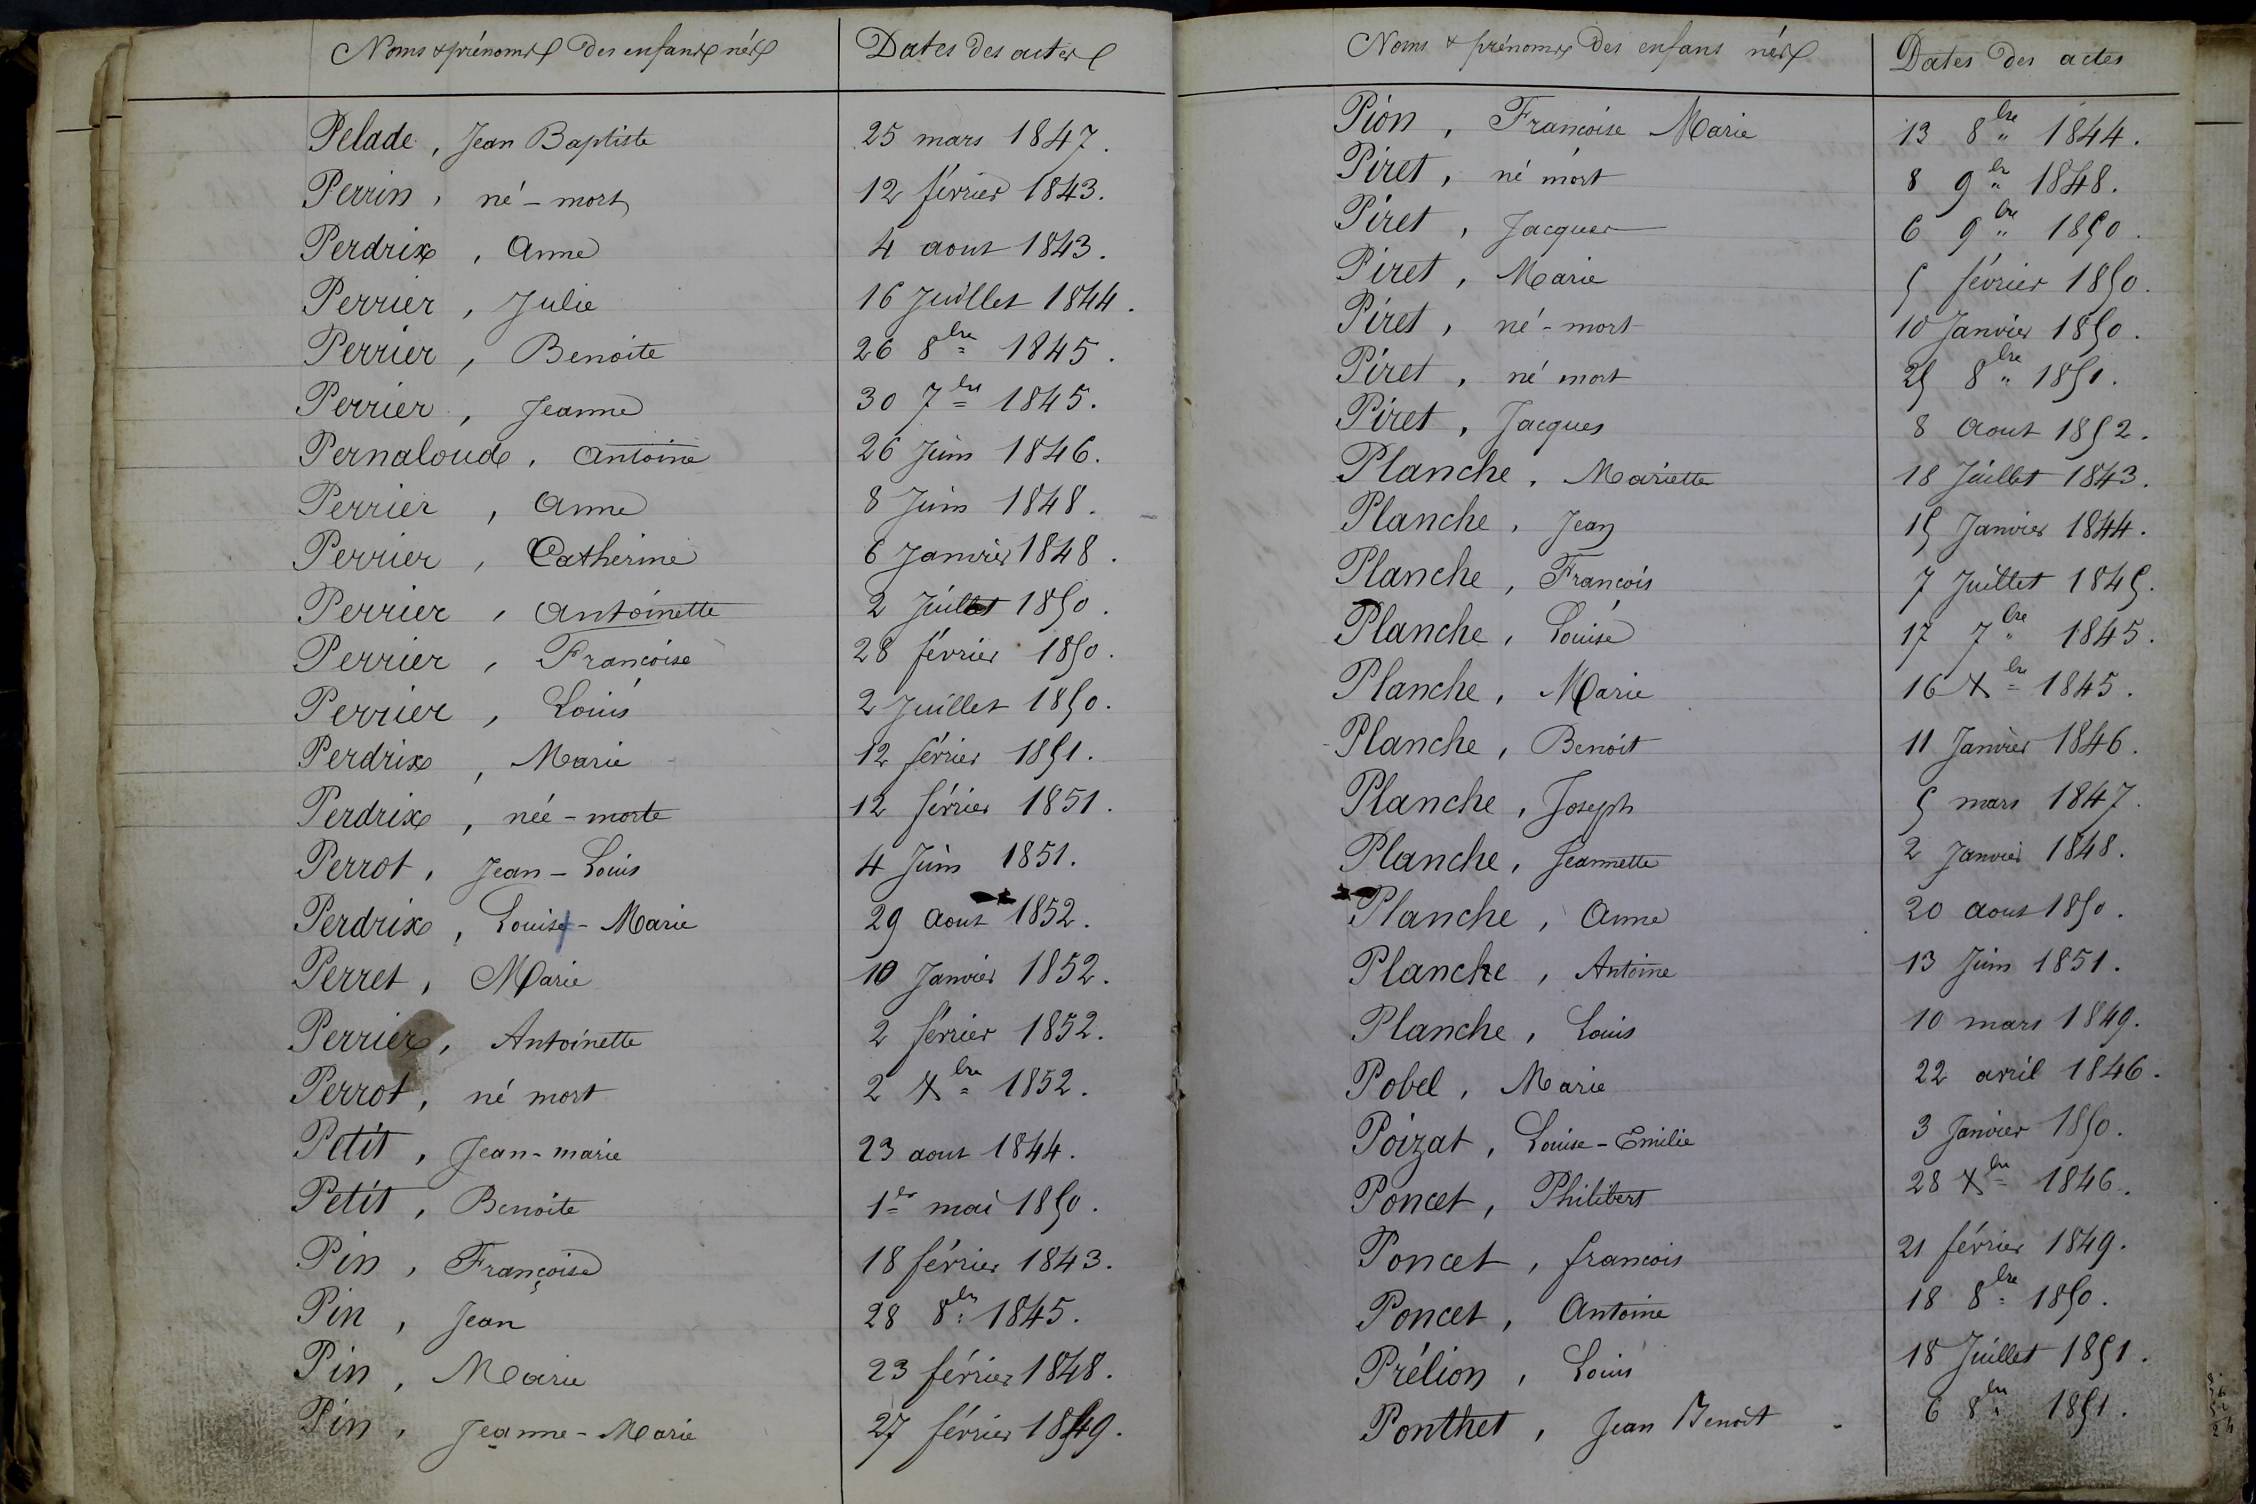 Noms & prénoms des enfans nés Dates des actes
Pelade, Jean Baptiste 25 mars 1847.
Perrin, né-mort 12 février 1843.
Perdrix, Anne 4 aout 1843.
Perrier, Julie 16 Juillet 1844.
Perrier, Benoite 26 8bre 1845.
Perrier, Jeanne 30 7bre 1845.
Pernaloude, Antoine 26 Juin 1846.
Perrier, Anne 8 Juin 1848.
Perrier, Catherine 6 Janvier 1848.
Perrier, Antoinette 2 Juillet 1850.
Perrier, Francoise 28 février 1850.
Perrier, Louis 2 Juillet 1850.
Perdrix, Marie 12 février 1851.
Perdrix, née-morte 12 février 1851.
Perrot, Jean-Louis 4 Juin 1851.
Perdrix, Louis-Marie 29 Aout 1852.
Perret, Marie 10 Janvier 1852.
Perrier, Antoinette 2 février 1852.
Perrot, né mort 2 Xbre 1852.
Petit, Jean-marie 23 aout 1844.
Petit, Benoite 1er mai 1850.
Pin, Françoise 18 février 1843.
Pin, Jean 28 8bre 1845.
Pin, Marie 23 février 1848.
Pin, Jeanne-Marie 27 février 1849.
Noms & prénoms des enfans nés Dates des actes
Pion, Francoise Marie 13 8bre 1844.
Piret, né mort 8 9bre 1848.
Piret, Jacques 6 9bre 1850.
Piret, Marie 5 février 1850.
Piret, né-mort 10 Janvier 1850.
Piret, né mort 25 8bre 1851.
Piret, Jacques 8 Aout 1852.
Planche, Mariette 18 Juillet 1843.
Planche, Jean 15 Janvier 1844.
Planche, Francois 7 Juillet 1845.
Planche, Louise 17 7bre 1845.
Planche, Marie 16 Xbre 1845.
Planche, Benoit 11 Janvier 1846.
Planche, Joseph 5 mars 1847.
Planche, Jeannette 2 Janvier 1848.
Planche, Anne 20 aout 1850.
Planche, Antoine 13 Juin 1851.
Planche, Louis 10 mars 1849.
Pobel, Marie 22 avril 1846.
Poizat, Louise-Emilie 3 Janvier 1850.
Poncet, Philibert 28 Xbre 1846.
Poncet, francois 21 février 1849.
Poncet, Antoine 18 8bre 1850.
Prélion, Louis 18 Juillet 1851.
Ponthet, Jean Benoit 6 8bre 1851.